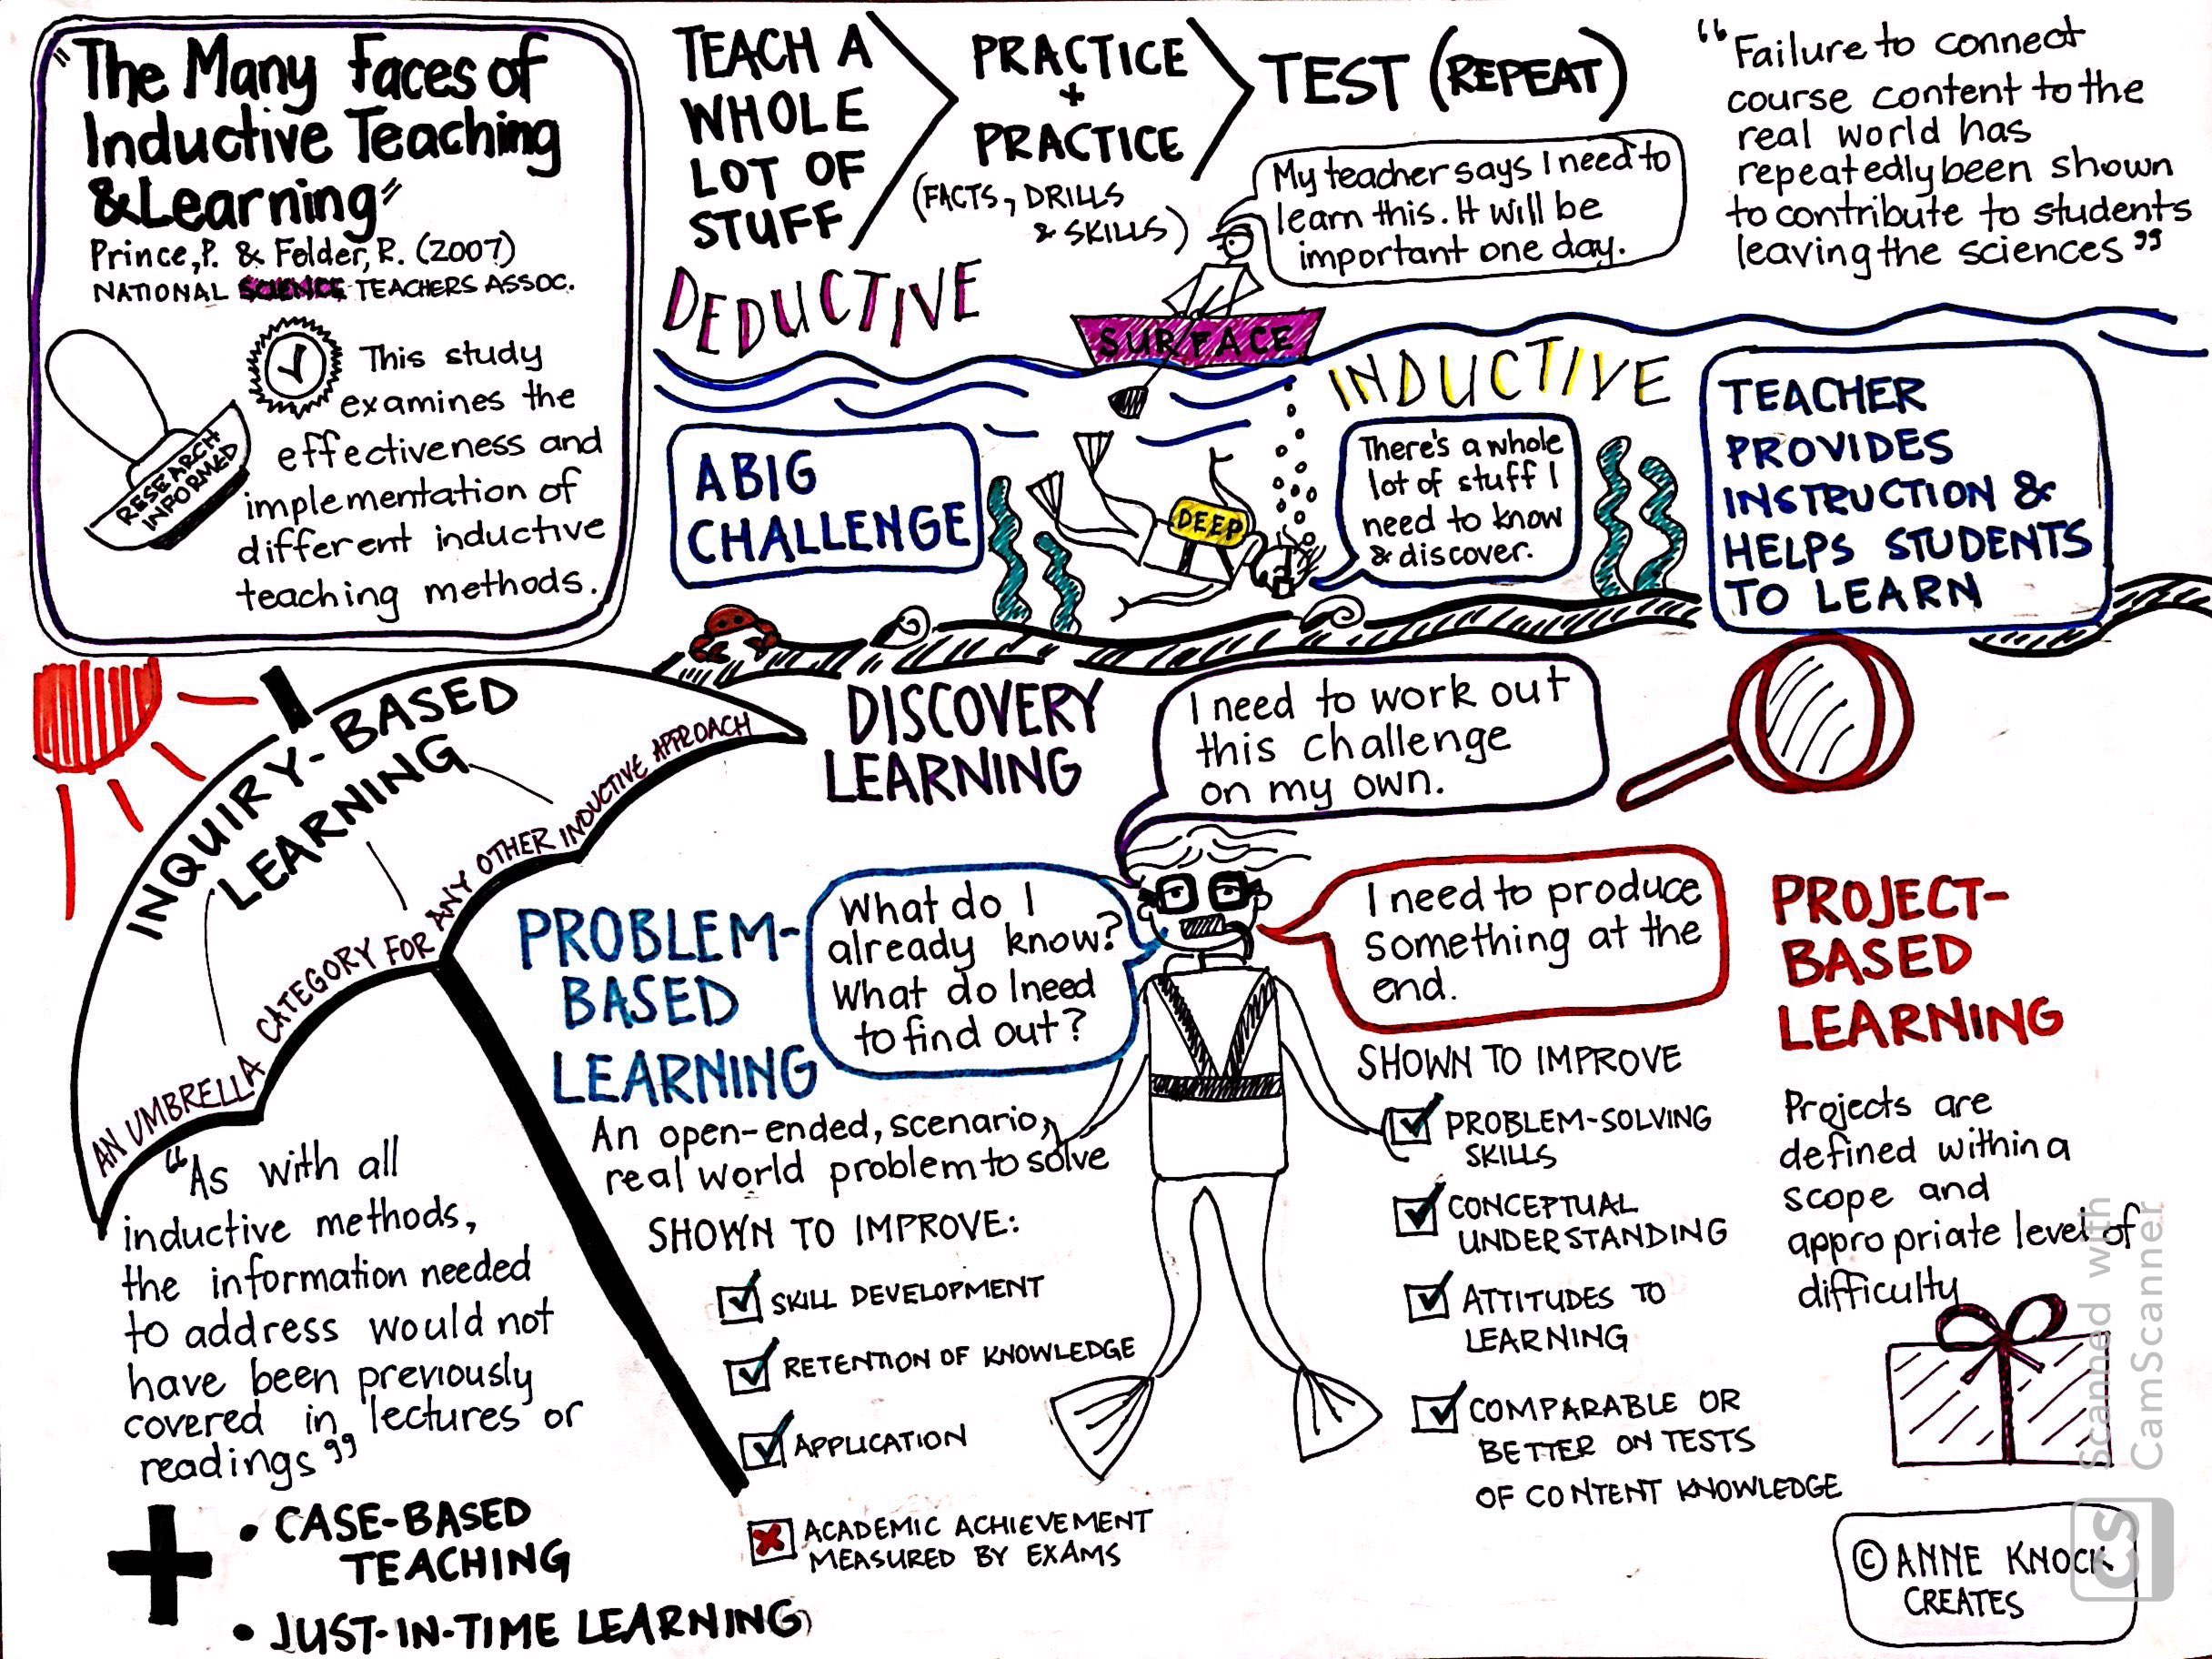 "The Many Faces of
Inductive Teaching
& Learning"
Prince, P. & Felder, R. (2007)
NATIONAL SCIENCE TEACHERS ASSOC.
This study
examines the
effectiveness and
implementation of
different inductive
teaching methods.
RESEARCH
INFORMED
TEACH A
WHOLE
LOT OF
STUFF
PRACTICE
+
PRACTICE
(FACTS, DRILLS
& SKILLS)
TEST (REPEAT)
My teacher says I need to
learn this. It will be
important one day.
"Failure to connect
course content to the
real world has
repeatedly been shown
to contribute to students
leaving the sciences"
DEDUCTIVE
SURFACE
INDUCTIVE
A BIG
CHALLENGE
DEEP
There's a whole
lot of stuff I
need to know
& discover.
TEACHER
PROVIDES
INSTRUCTION &
HELPS STUDENTS
TO LEARN
INQUIRY-BASED
LEARNING
AN UMBRELLA CATEGORY FOR ANY OTHER INDUCTIVE APPROACH
"As with all
inductive methods,
the information needed
to address would not
have been previously
covered in lectures or
readings"
+
• CASE-BASED
TEACHING
• JUST-IN-TIME LEARNING
DISCOVERY
LEARNING
I need to work out
this challenge
on my own.
PROBLEM-
BASED
LEARNING
What do I
already know?
What do I need
to find out?
An open-ended, scenario,
real world problem to solve
SHOWN TO IMPROVE:
SKILL DEVELOPMENT
RETENTION OF KNOWLEDGE
APPLICATION
ACADEMIC ACHIEVEMENT
MEASURED BY EXAMS
I need to produce
something at the
end.
SHOWN TO IMPROVE
PROBLEM-SOLVING
SKILLS
CONCEPTUAL
UNDERSTANDING
ATTITUDES TO
LEARNING
COMPARABLE OR
BETTER ON TESTS
OF CONTENT KNOWLEDGE
PROJECT-
BASED
LEARNING
Projects are
defined within a
scope and
appropriate level of
difficulty
© ANNE KNOCK
CREATES
CS
Scanned with
CamScanner